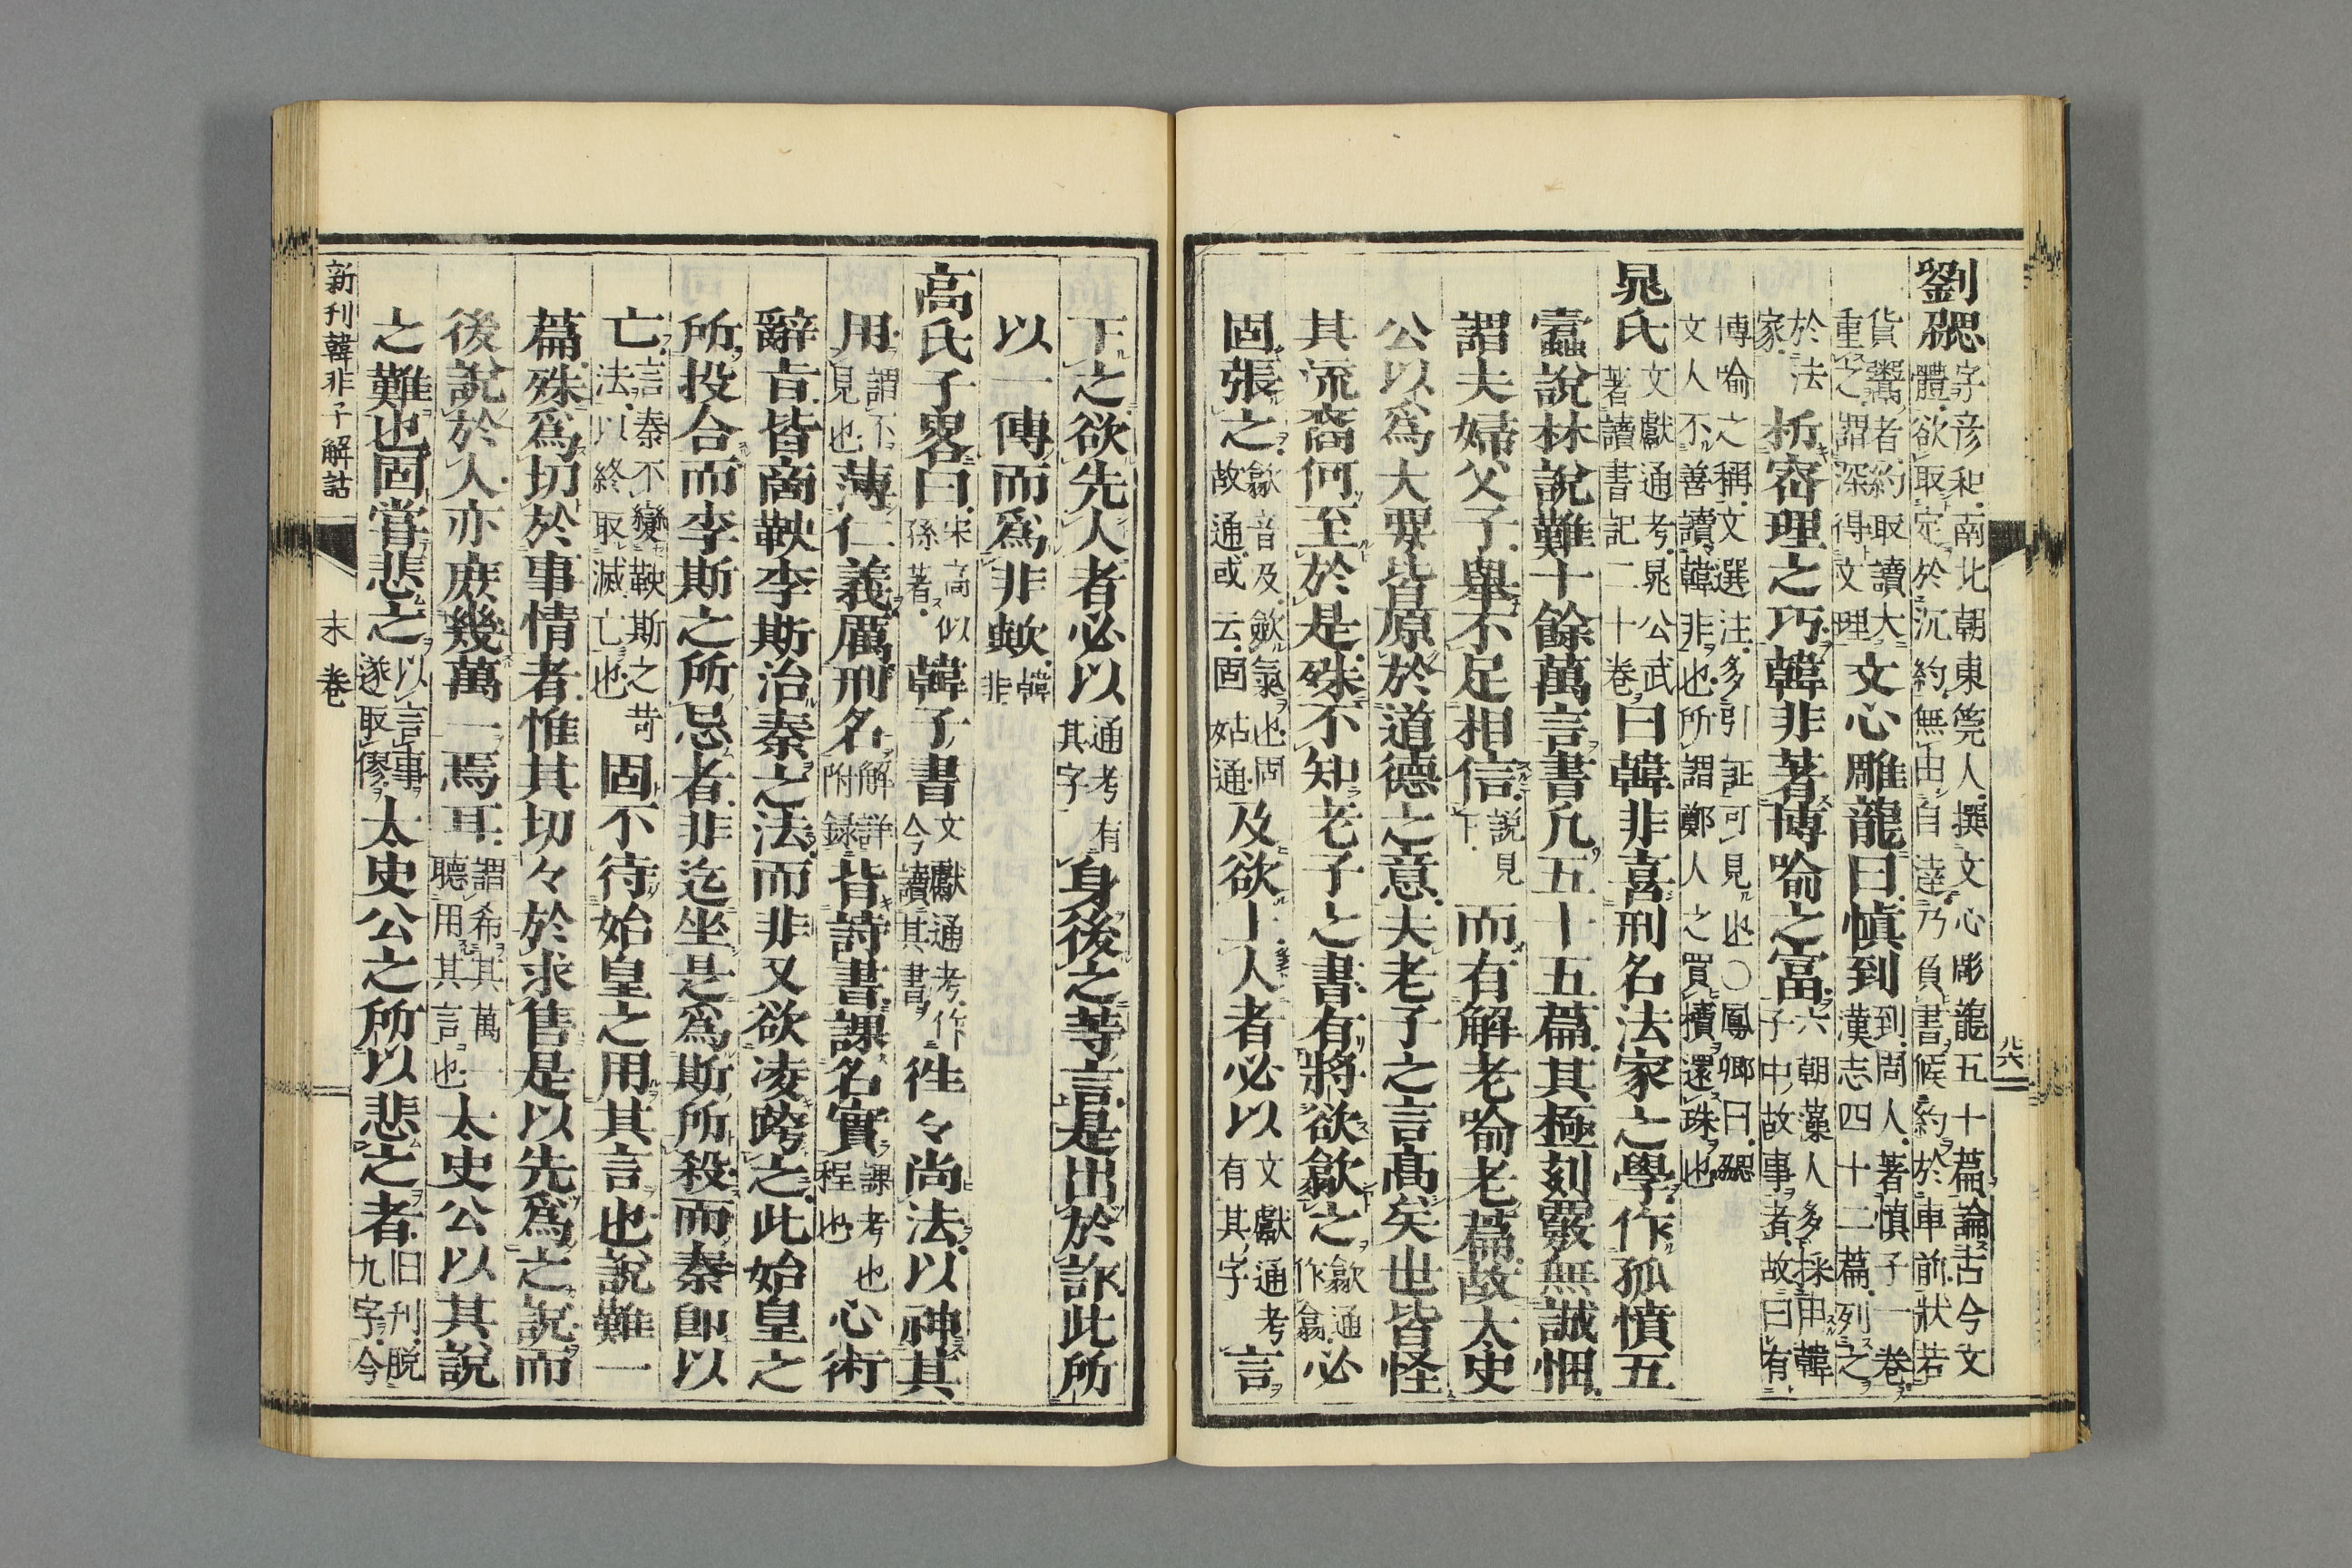 劉勰字彦和南北朝東筦人撰文心彫龍五十篇論古今文
體欲取定於沉約無由自達乃負書候約於車前狀若
貨鬻者約取讀大
重之謂深得文理文心雕龍曰慎到到周人著慎子一卷
漢志四十二篇列之
於法
家析密理之巧韓非著博喻之富六朝藻人多採用韓
子中故事者故曰有
博喻之稱文選注多引証可見也○鳳卿曰勰
文人不善讀韓非也所謂鄭人之買櫝還珠也
晁氏文獻通考晁公武
著讀書記二十卷曰韓非喜刑名法家之學作孤憤五
蠹說林說難十餘萬言書凡五十五篇其極刻覈無誠悃
謂夫婦父子舉不足相信說見
下而有解老喻老篇故太史
公以為大要皆原於道德之意夫老子之言高矣世皆怪
其流裔何至於是殊不知老子之書有將欲歙之歙通
作翕必
固張之歙音及歛氣也固
故通或云固姑通及欲上人者必以文獻通考
有其字言
下之欲先人者必以通考有
其字身後之等言是出於詐此所
以一傳而為非歟韓
非
高氏子畧曰宋高似
孫著韓子書文獻通考作
今讀其書徃々尚法以神其
用謂不
見也薄仁義厲刑名解詳
附録背詩書課名實課考也
程也心術
辭旨皆商鞅李斯治秦之法而非又欲凌跨之此始皇之
所投合而李斯之所忌者非迄坐是為斯所殺而秦即以
亡言秦不變鞅斯之苛
法以終取滅亡也固不待始皇之用其言也說難一
篇殊為切於事情者惟其切々於求售是以先為之說而
後說於人亦庶幾萬一焉耳謂希其萬一
聽用其言也太史公以其說
之難也固嘗悲之以言事
遂取僇太史公之所以悲之者旧刊脱
九字今
新刊韓非子解詁
末卷